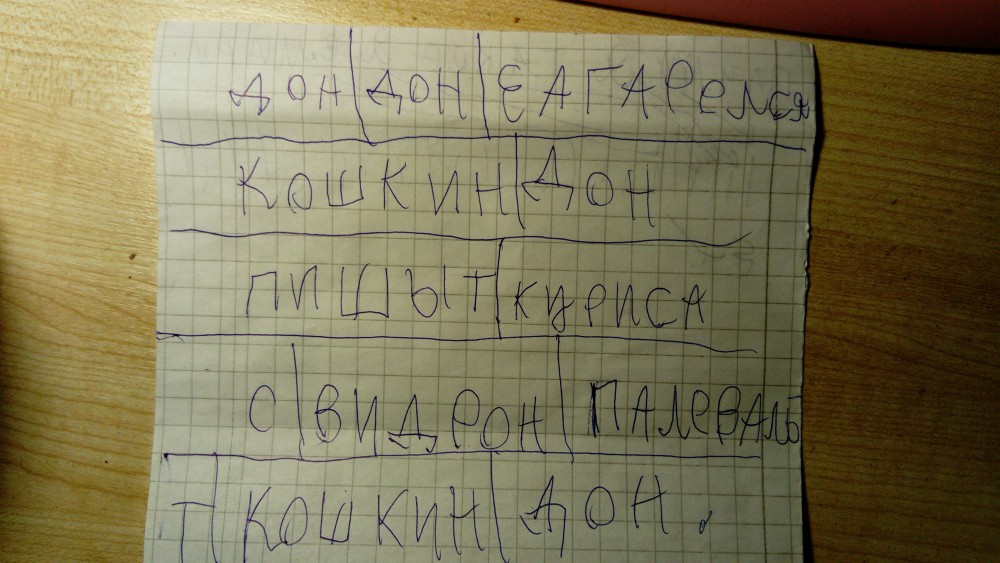 ДОН ДОН ЄАГАРЕЛСЯ
КОШКИН ДОН
ПИШЫТ КУРИСА
С ВИДРОН ПАЛЕВАЛЬ
Т КОШКИН ДОН.